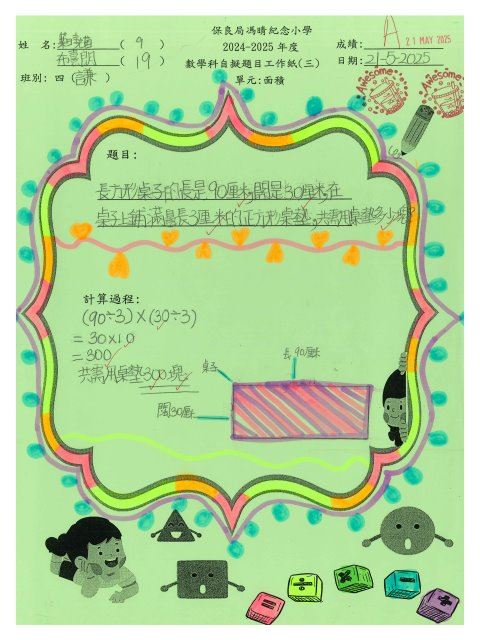 保良局馮晴紀念小學
2024-2025 年度
數學科自擬題目工作紙(三)
單元:面積
姓 名: ( 9 )
( 19 )
班別: 四 ( 謙 )
成績: A
21 MAY 2025
日期: 21-5-2025
Awesome
Awesome
題目:
長方形桌子的長是90厘米,闊是30厘米,在
桌子上鋪滿邊長3厘米的正方形桌墊,共需用桌墊多少塊?
計算過程:
(90÷3)×(30÷3)
=30×10
=300
共需用桌墊300塊。
桌子
長90厘米
闊30厘米